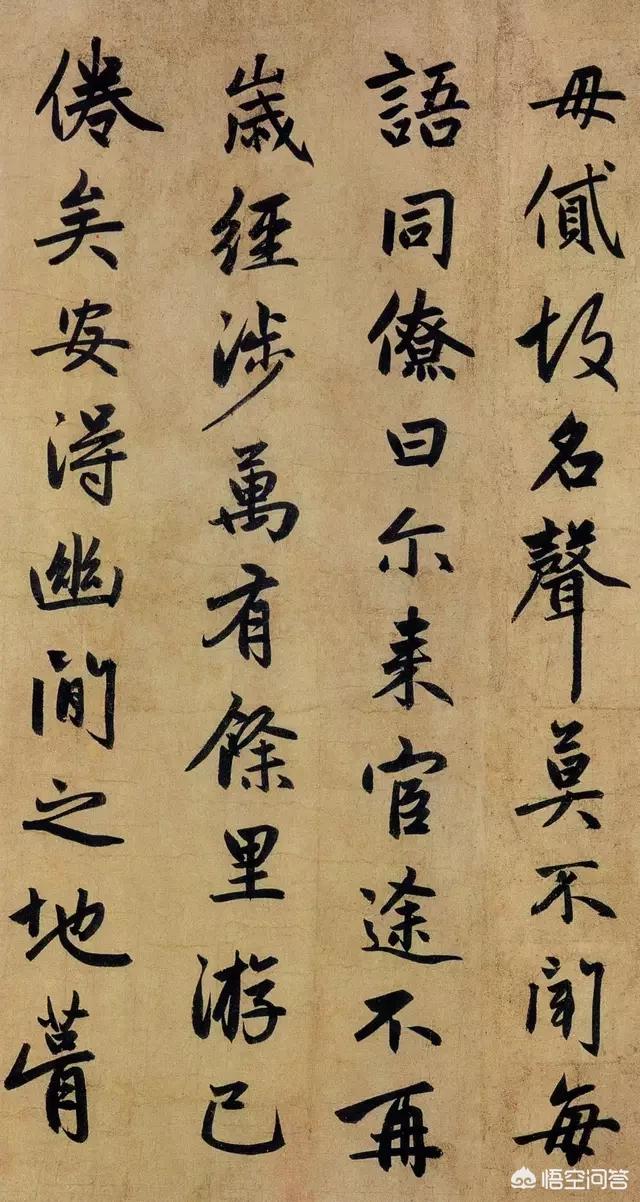 毋貸故名聲莫不聞每
語同僚曰尔来宦途不再
歲經涉萬有餘里游已
倦矣安得幽閒之地
悟空问答